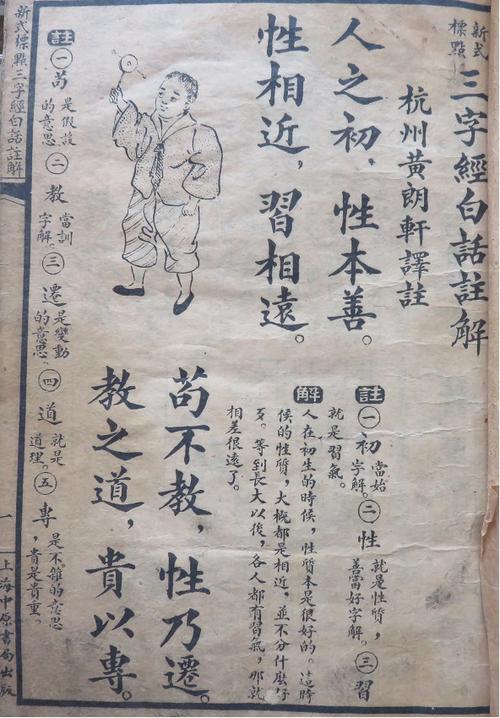 新式標點
三字經白話註解
杭州黃朗軒譯註
人之初，性本善。
性相近，習相遠。
註㊀初當始字解。㊁性就是性質，善當好字解。㊂習
就是習氣。
解人在初生的時候，性質本是很好的。這時
候的性質，大概都是相近，並不分什麼好
歹。等到長大以後，各人都有習氣，那就
相差很遠了。
苟不教，性乃遷。
教之道，貴以專。
註㊀苟是假設的意思㊁教當訓字解。㊂遷是變動的意思。㊃道就是道理。㊄專，是不雜的意思，貴是貴重。
新式標點三字經白話註解
一
上海中原書局出版